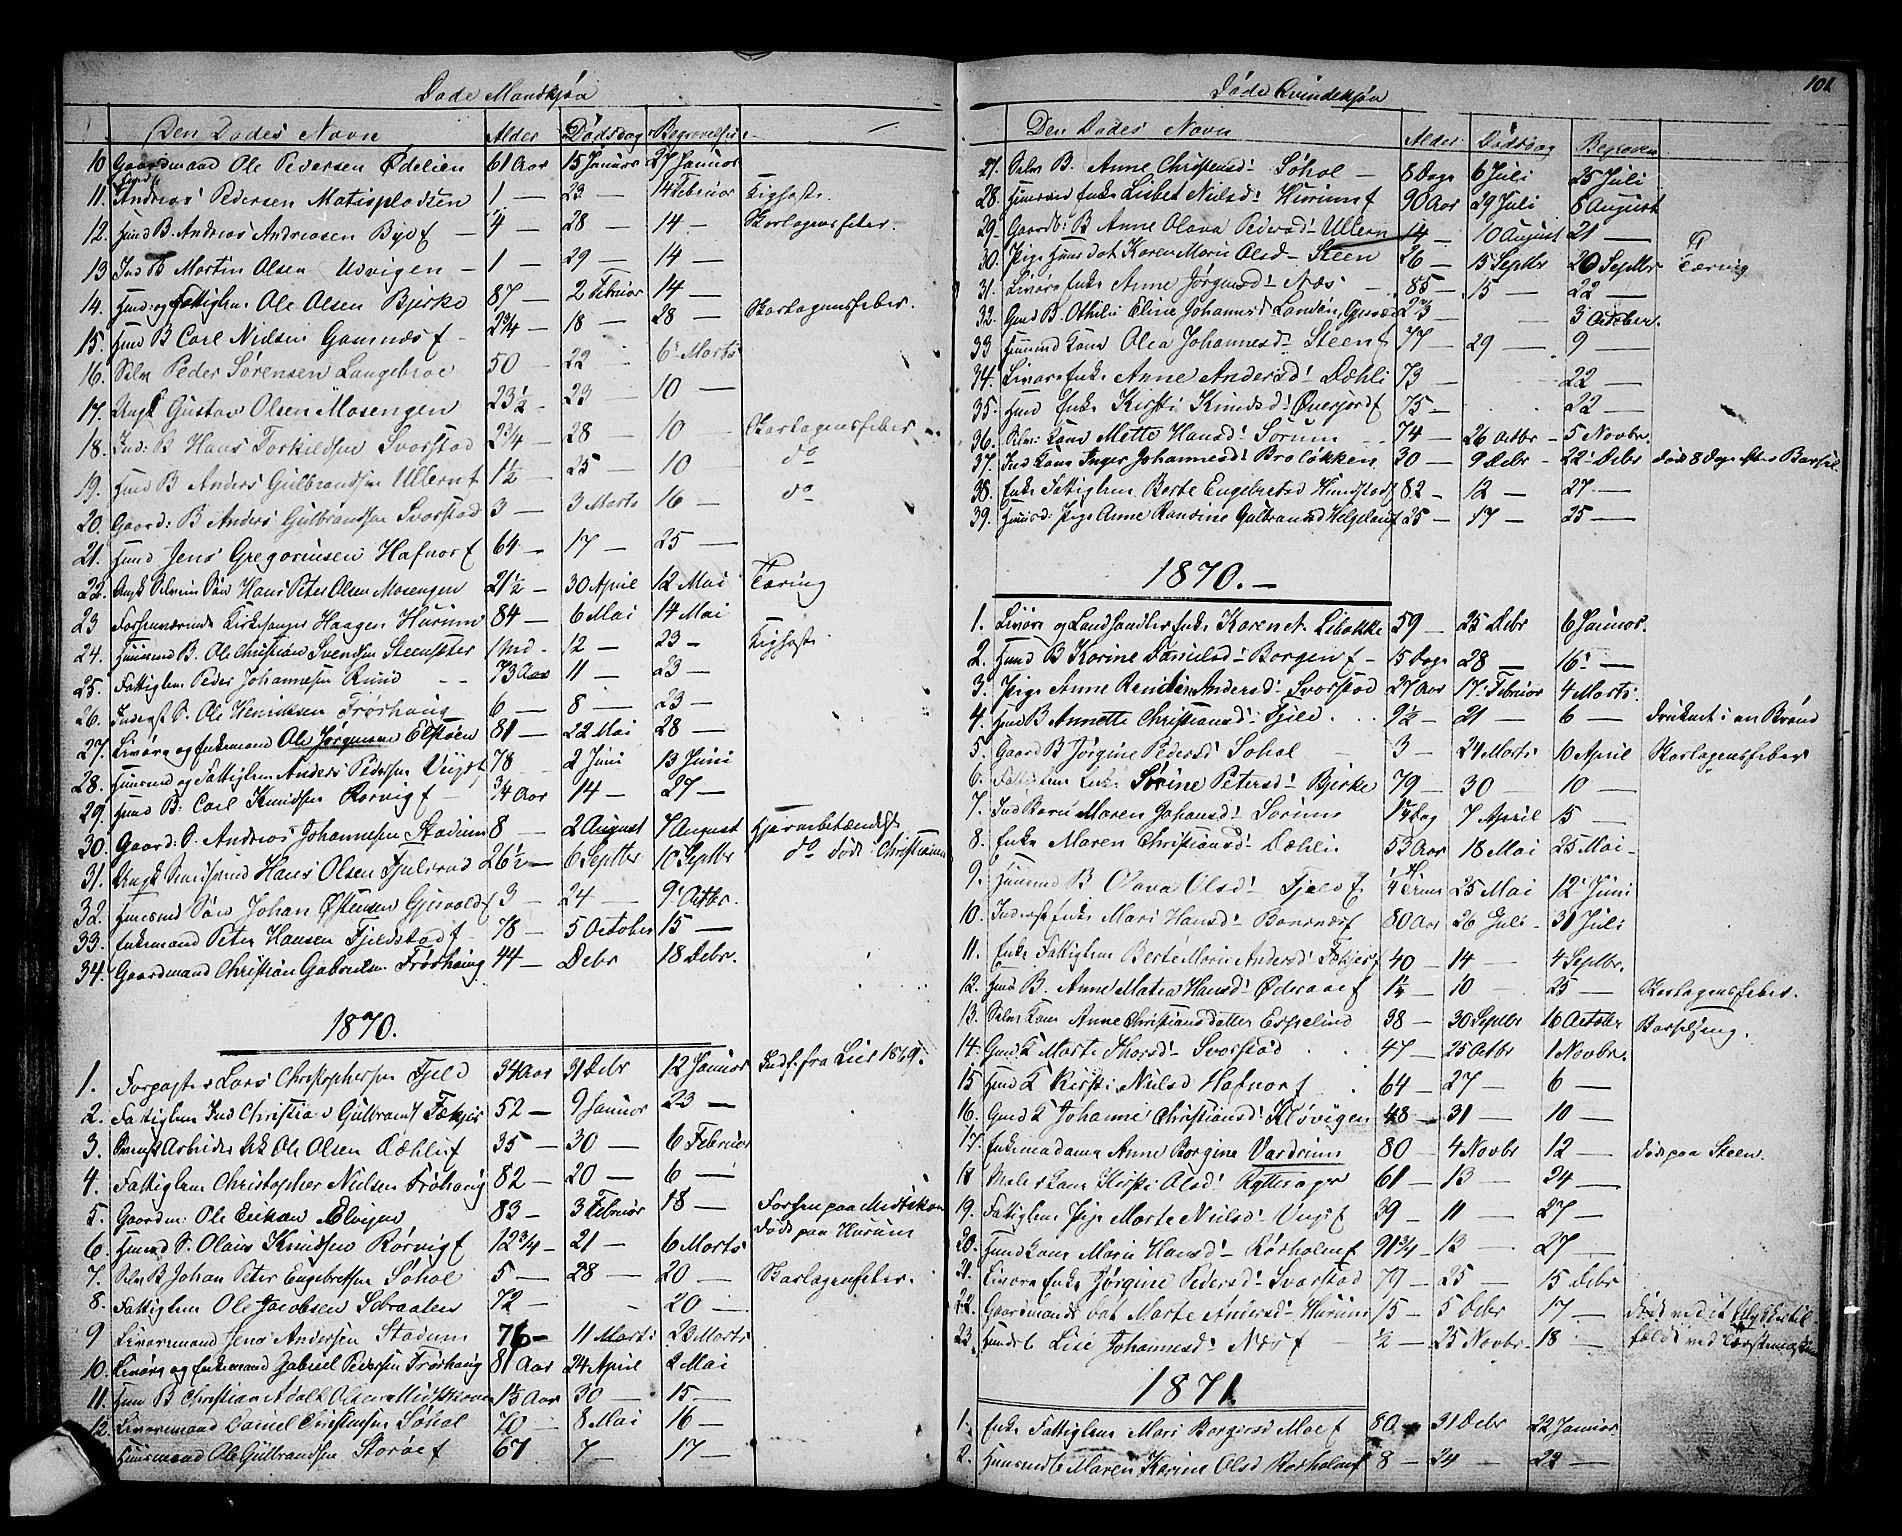 Døde Mandkjøn
Den Dødes Navn Alder Dødsdag Begravelses
10 Gaardmand Ole Pedersen Ødelien 61 Aar 15 Januar 27 Januar
11. Andreas Pedersen Matisplodsen 1 — 23 — 14 Februar Kighoste
12. Huusd B. Andreas Andreasen Bye 28 — 14 — Skarlagensfeber.
13 Ind B Martin Olsen Udvigen — 1 — 29 — 14 —
14. Huusd: og Fattiglem Ole Olsen Bjerke 87 — 2 Februar 14 —
15. Huusd B Carl Nielsen Gomnæs 2¾ — 18 — 28 — Skarlagensfeber.
16. Selv Peder Sørensen Langebroe 50 22 — 6 Marts
17. Ungk Gustav Olsen Mosengen 23½ 23 10 —
18. Ind: B Hans Torkildsen Svarstad 2¾ — 28 — 10 — Skarlagensfeber
19. Huusd B Anders Gulbrandsen Ullern 1½ 25 — 10 — do
20. Gaard: B Anders Gulbrandsen Svarstad 3 — 3 Marts 16 — do
21. Huusd Jens Gregoriusen Hafnor 64 — 17 — 25 —
22. Ungk Selveiers Søn Hans Peter Olsen Mosengen 21½ — 30 April 12 Mai Tæring
23 Kirkesanger Haagen Hurum 84 — 6 Mai 14 Mai
24. Huusmd B. Ole Christian Svendsen Steensæter 1 Md. 12 — 23 — Kighoste
25. Fattiglem Peder Johannesen Rund 73 Aar 11 — 23 —
26. Inderst S. Ole Henriksen Frørhaug 6 — 8 — 23 —
27. Livøre og Enkemand Ole Jørgensen Elstøen 81 — 22 Mai 28 —
28. Huusmd og Fattiglem Anders Pedersen Viigst 78 2 Juni 13 Juni
29. Huusd B. Carl Knudsen Rørvig ¾ Aar 14 — 27 —
30. Gaard: S. Andreas Johannesen Stadum 8 — 2 August 7 August Hjernebetændelse
31. Ungk Hans Olsen Fjelstad 26½ — 6 Septbr 10 Septbr do død i Christiania
32. Huusmd Søn Johan Østensen Gjevald 3 — 24 — 9 Octbr.
33. Enkemand Peter Hansen Fjeldstad 78 — 5 October 15 —
34. Gaardmand Christian Gabrielsen Frørhaug 44 — Debr 18 Debr.
1870.
1. Forpagter Lars Christophersen Fjeld 34 Aar 31 Debr 12 Januar Indf. fra Lier 1869.
2. Fattiglem Ind Christian Gulbrands Fækjær 52 — 9 Januar 23 —
3. Arbeider Ole Olsen Dæhli 35 — 30 — 6 Februar
4. Fattiglem Christopher Nielsen Frøhaug 82 — 20 — 6 —
5. Gaardm: Ole Eriksen Elvigen 83 — 3 Februar 18 —
6. Huusmd S. Olaus Knudsen Rørvig 12¾ — 21 — 6 Marts død paa Hurum
7. Selv B Johan Peter Engebretsen Søhol 5 — 28 — 20 — Skarlagensfeber.
8. Fattiglem Ole Jacobsen 72 — 20 —
9 Livøremand Jens Andersen Stadum 76 — 11 Marts 23 Marts
10. Livøre og Enkemand Gabriel Pedersen Frørhaug 81 Aar 24 April 2 Mai
11. Huus B Christian Adolf 1½ Aar 30 — 15 —
12. Livøremand Daniel Christensen Søhol 70 — 8 Mai 16 —
Huusmand Ole Gulbrandsen Storøe 67 7 — 17 —
Døde Qvindekjøn 101
Den Dødes Navn Alder Dødsdag Begraven
27. Selv B. Anne Christensd: Søhol — 8 Dage 6 Juli 25 Juli
28. Huusmd Enke Lisbet Nielsd: Hurum 90 Aar 29 Juli 8 August
29. Gaardb: B Anne Olava Pedersd: Ullern 14 — 10 August 21 —
30. Pige Huusd dat Karen Marie Olsd: Steen 26 — 15 Septbr 20 Septbr Tæring
31. Livøre Enke Anne Jørgensd: Næs 85 — 15 — 22 —
32. Gmd B. Othilie Eline Johannesd 3 October.
33 Huusmd Kone Olea Johannesd: Steen 77 — 29 — 9 —
34. Livøre Enke Anne Andersd: Dæhli 73 — 22 —
35. Huusd Enke Kirsti Knudsd: Øverjord 75 — 22 —
36. Selv: Kone Mette Hansd: Sørum 74 — 26 Octbr — 5 Novbr.
37. Ind Kone Inger Johannesd: Broløkken 30 — 9 Debr — 22 Debr død 8 Dage efter Barsel
38. Enke Fattiglem Berte Engebretsd Hundstad 82 — 12 — 27 —
39. Huusd: Pige Anne Randine Gulbrandsd Helgeland 25 — 17 — 25 —
1870. —
1. Livøre og Landhandler Enke Karen A. Libakke 59 — 25 Debr 6 Januar.
2. Huusd B Karine Danielsd: Borgen 15 Dage 28 — 16 —
3. Pige Anne Randine Andersd: Svarstad 27 Aar 17 Februar 4 Marts
4. Huusd B Annette Christiansd: Fjeld 9½ — 21 — 6 — druknet i en Brønd
5. Gaard B Jørgine Pedersd: Søhol 3 — 24 Marts 10 April Skarlagensfeber
6. Fattiglem Enke Sørine Petersd: Bjerke 79 — 30 — 10 —
7. Ind Barn Maren Johansd: Sørum Dag 7 April 15 —
8. Enke Maren Christiansd: Dæhli 53 Aar 18 Mai 25 Mai
9. Huusmd B Olava Olsd: Fjeld 25 Mai 12 Juni
10. Inderst Enke Mari Hansd: Bornæs 80 Aar 26 Juli 31 Juli
11. Enke Fattiglem Berte Marie Andersd: Fækjer 40 — 14 — 4 Septbr.
12. Huusd B. Anne Matea Hansd: Øderaae 1¼ — 10 — 25 — Skarlagensfeber.
13. Selv Kone Anne Christiansdatter Espelund 38 — 30 Septbr 16 Octobr Barselseng.
14. Gmd K Marte Thorsd: Svarstad 47 — 25 Octbr 1 Novbr.
15 Huusd K Kirsti Nielsd Hafnor 64 — 27 — 6 —
16. Gmd K Johanne Christiansd: Kløvigen 48 — 31 — 10 —
17. Enkemadame Anne Borgine Vardrum 80 — 4 Novbr 12 — død paa Steen.
18 Maler Kone Kirsti Olsd: Rytterager 61 — 13 — 24 —
19. Fattiglem Pige Marte Nielsd: Viigs 39 — 11 — 27 —
20. Huusd Kone Marie Hansd: Rørholm 91¾ — 13 — 27 —
21. Livøre Enke Jørgine Pedersd: Svarstad 79 — 25 — 15 Debr
22. Gaardmands dat Marte Andersd: Hurum 15 — 5 Debr — 17 — død ved et Ulykkestil-
23. Huusdb Lise Johannesd: Nær ½ — 25 Novbr. 18 — fælde ved Tærskemaskine
1871.
1. Enke Fattiglem Mari Borgersd: Moe 80 31 Debr 22 Januar
2. Huusmdb Maren Karine Olsd Rørholm 8 — 24 — 22 —